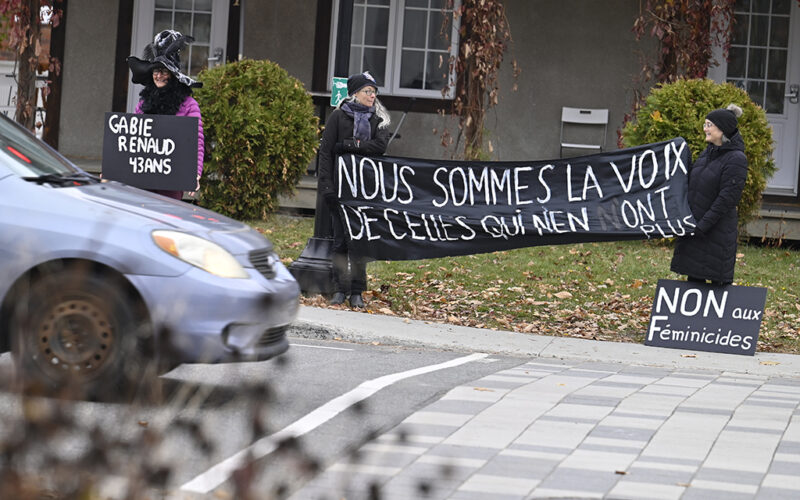 GABIE
RENAUD
43ANS
NOUS SOMMES LA VOIX
DE CELLES QUI N'EN N'ONT PLUS
NON aux
Féminicides